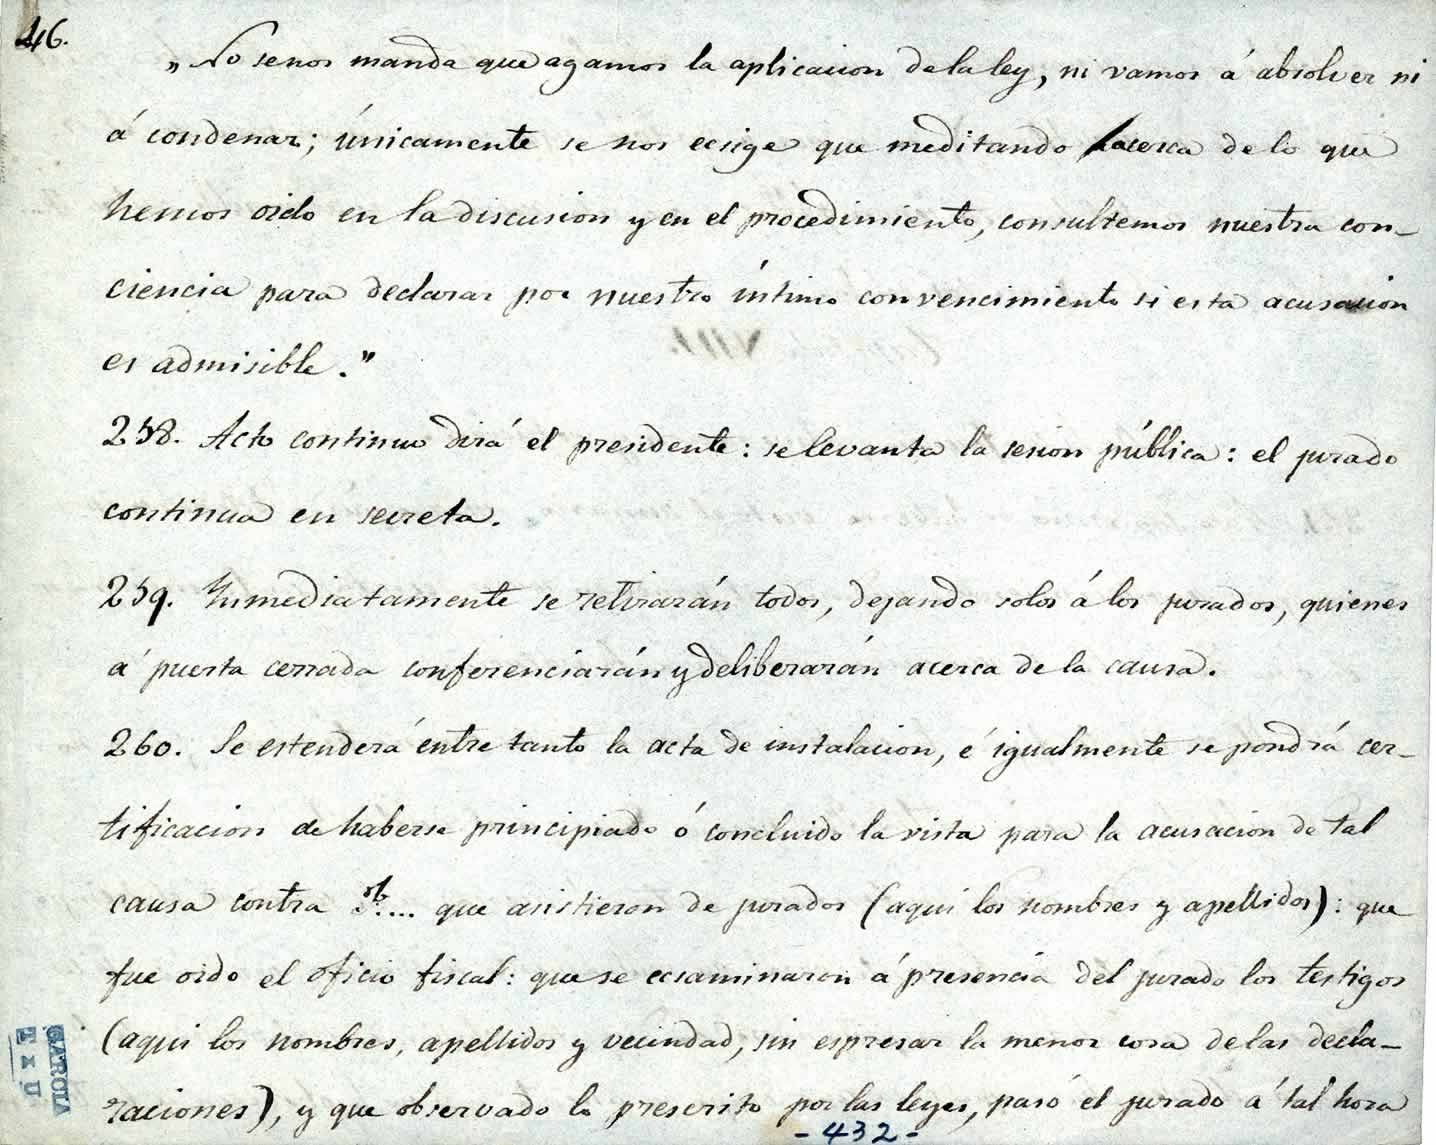 46.
„No senos manda que agamos la aplicacion de la ley, ni vamos á absolver ni
á condenar; únicamente se nos ecsige que meditando acerca de lo que
hemos oido en la discusion y en el procedimiento, consultemos nuestra con-
ciencia para declarar por nuestro íntimo convencimiento si esta acusacion
es admisible."
258. Acto continuo dirá el presidente: se levanta la sesion pública: el jurado
continua en secreta.
259. Inmediatamente se retirarán todos, dejando solos á los jurados, quienes
á puerta cerrada conferenciarán y deliberarán acerca de la causa.
260. Se estenderá entre tanto la acta de instalacion, é igualmente se pondrá cer-
tificacion de haberse principiado ó concluido la vista para la acusacion de tal
causa contra .... que asistieron de jurados (aqui los nombres y apellidos): que
fue oido el oficio fiscal: que se ecsaminaron á presencia del jurado los testigos
(aqui los nombres, apellidos y vecindad, sin espresar la menor cosa de las decla-
raciones), y que observado lo prescrito por las leyes, pasó el jurado á tal hora
-432-
GARCIA